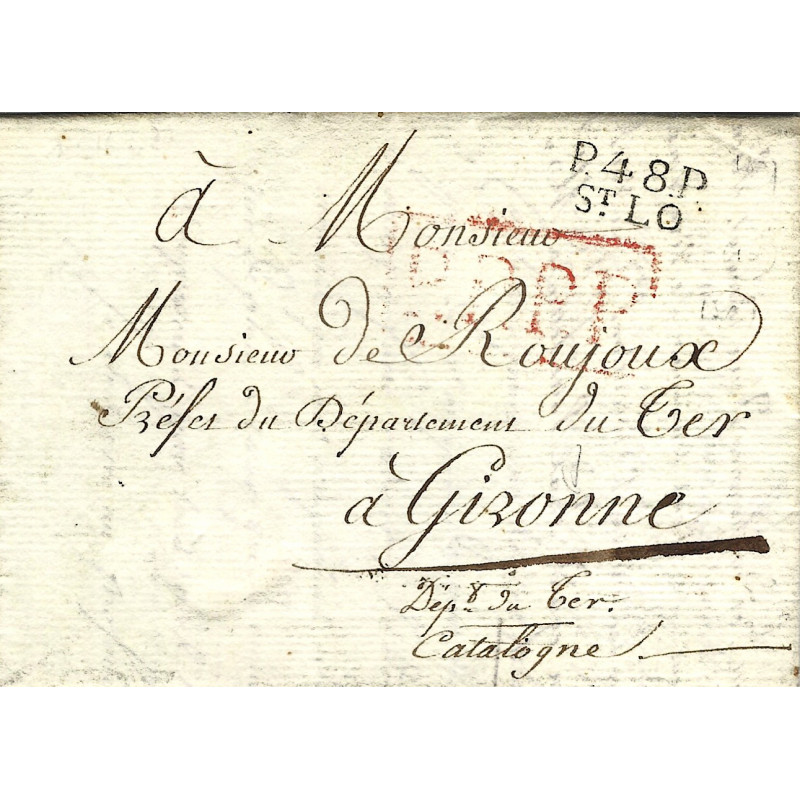 P.48.P.
ST. LO
à Monsieur
P.P.P.P.
Monsieur de Roujoux
Préfet du Département du Ter
à Gironne
Dépt. du Ter.
Catalogne.